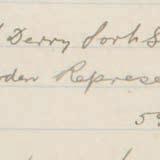 Derry Pork S
den Represe
59